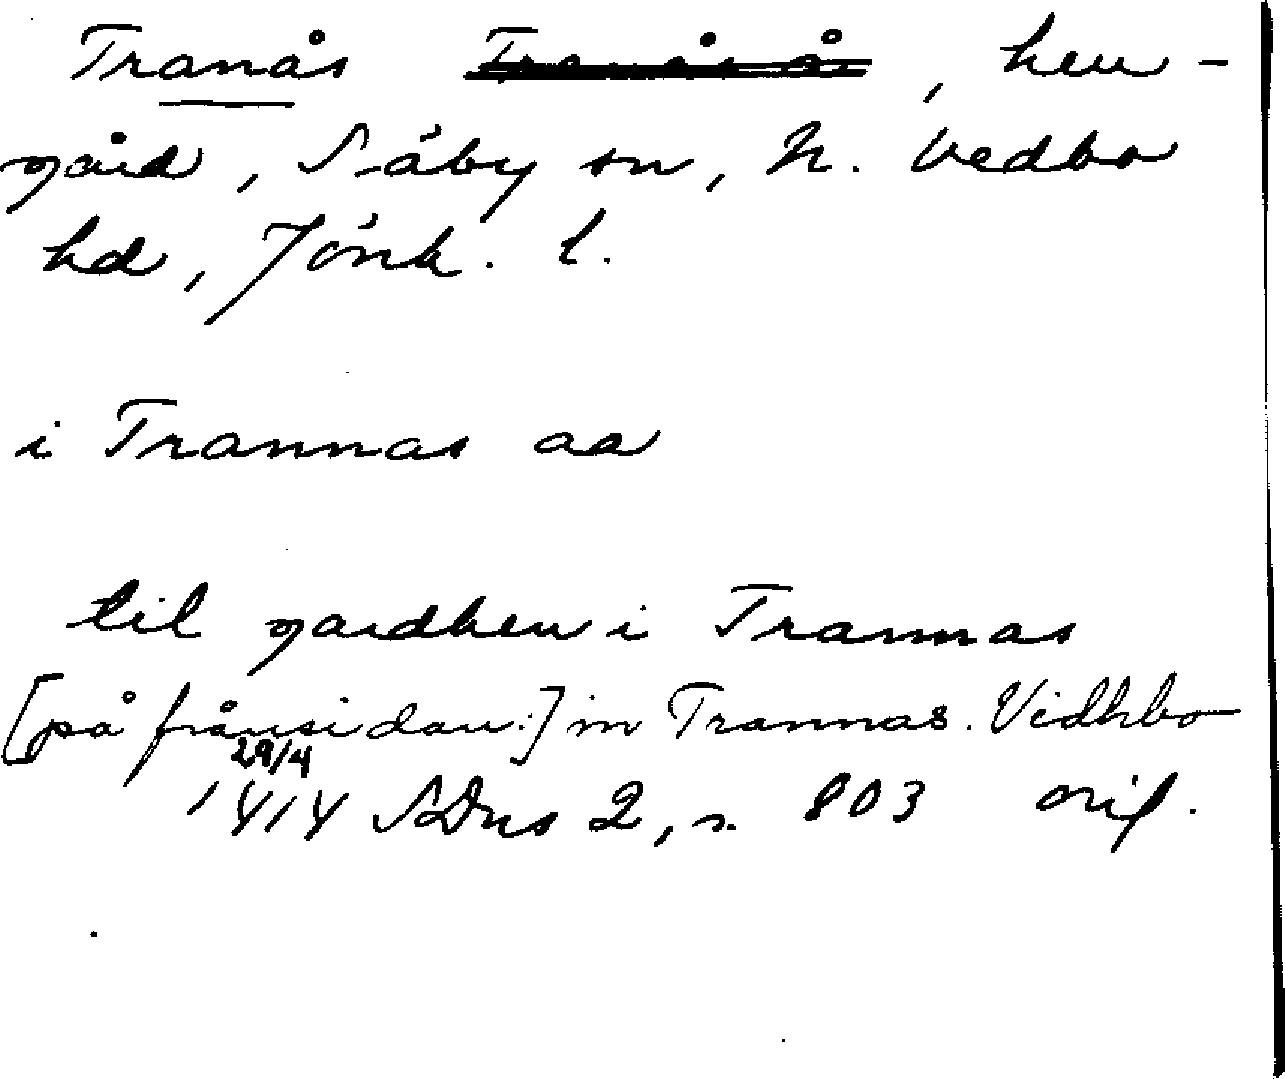 Tranås Tranåså, hem-
gård, Säby sn, N. Vedbo
hd, Jönk. l.
i Trannas aa
til gardhen i Trannas
[på frånsidan:] in Trannas. Vidhbo
29/4
1414 SDns 2, s. 803 orig.